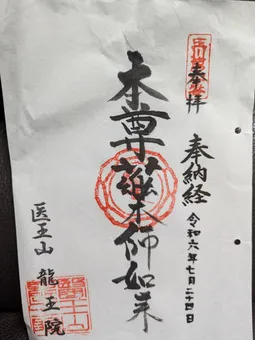 奉拝
奉納経
令和六年七月二十四日
本尊藥师如来
医王山
龍王院